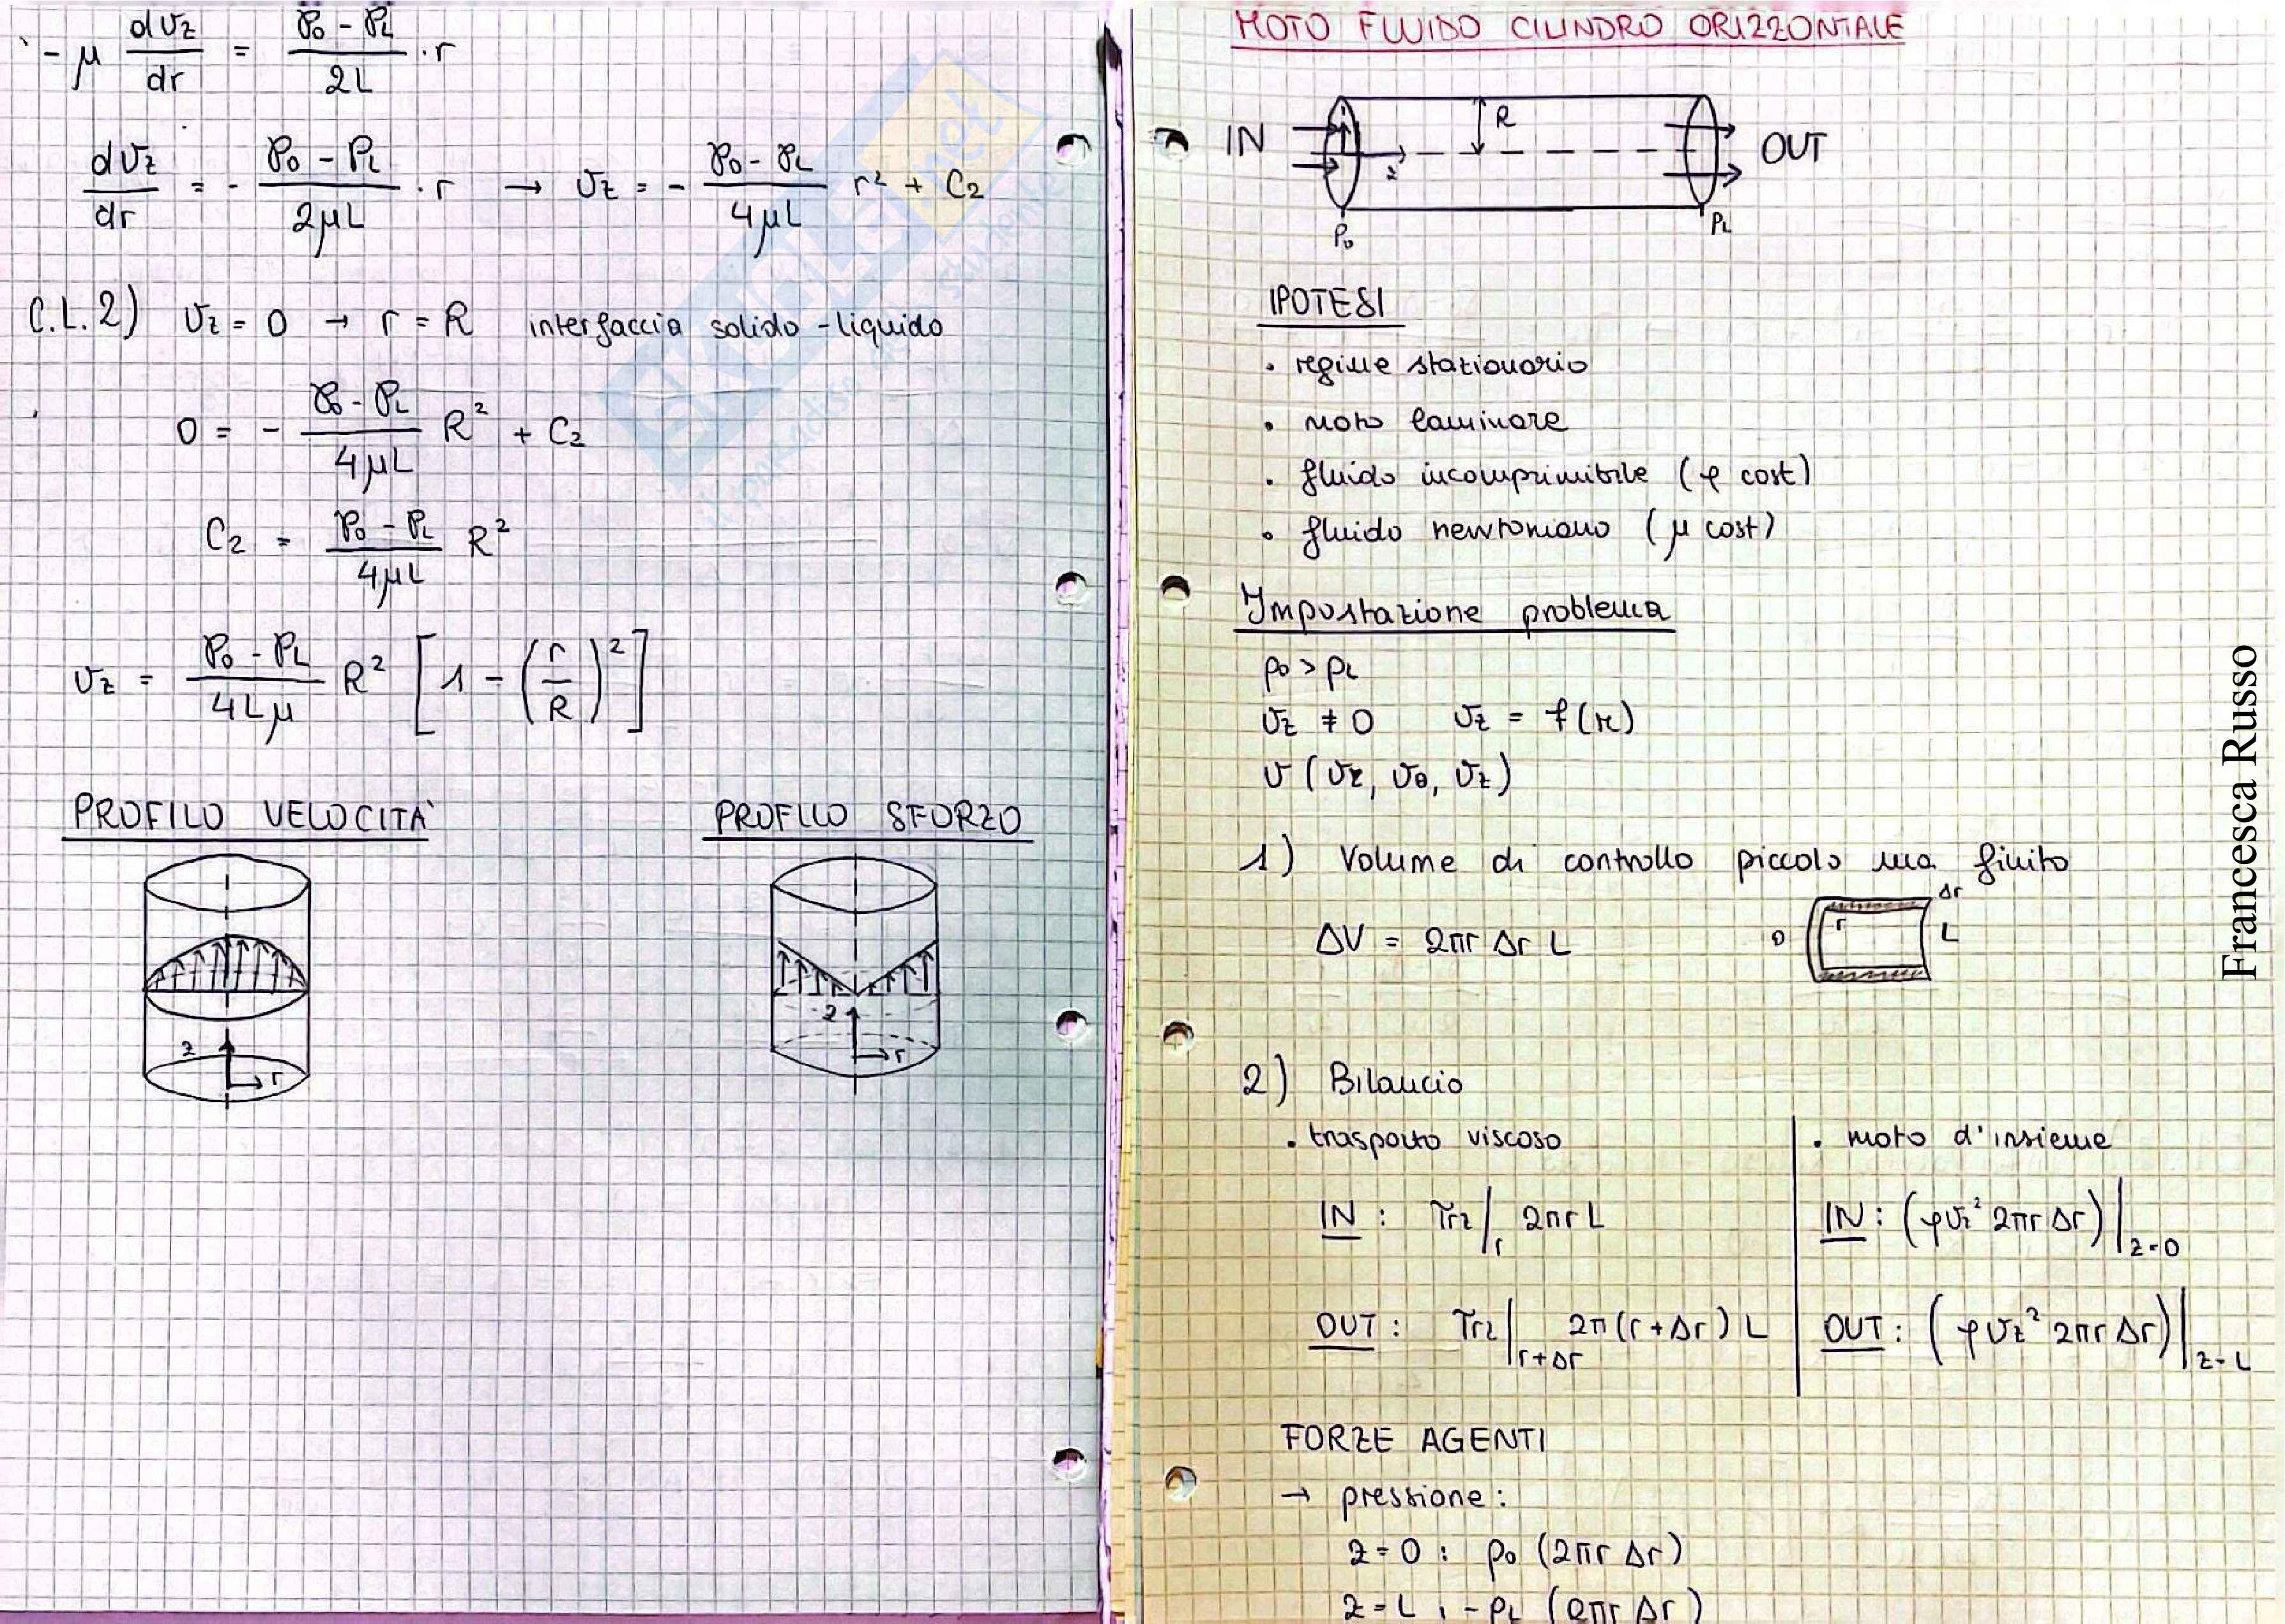 -μ dvz/dr = (P0 - PL)/2L · r
dvz/dr = - (P0 - PL)/2μL · r → vz = - (P0 - PL)/4μL r² + C2
C.L.2) vz = 0 → r = R interfaccia solido-liquido
0 = - (P0 - PL)/4μL R² + C2
C2 = (P0 - PL)/4μL R²
vz = (P0 - PL)/4Lμ R² [1 - (r/R)²]
PROFILO VELOCITÀ
PROFILO SFORZO
z
r
z
r
SKUOLA.net
il paradiso dello studente
MOTO FLUIDO CILINDRO ORIZZONTALE
IN
R
z
OUT
P0
PL
IPOTESI
· regime stazionario
· moto laminare
· fluido incomprimibile (ρ cost)
· fluido newtoniano (μ cost)
Impostazione problema
p0 > pL
vz ≠ 0 vz = f(r)
v (vr, vθ, vz)
1) Volume di controllo piccolo ma finito
ΔV = 2πr Δr L
Δr
r
0
L
2) Bilancio
· trasporto viscoso
IN : τrz|r 2πr L
OUT : τrz|r+Δr 2π(r+Δr) L
· moto d'insieme
IN : (ρvz² 2πr Δr)|z=0
OUT : (ρvz² 2πr Δr)|z=L
FORZE AGENTI
→ pressione :
z=0 : p0 (2πr Δr)
z=L : -pL (2πr Δr)
Francesca Russo